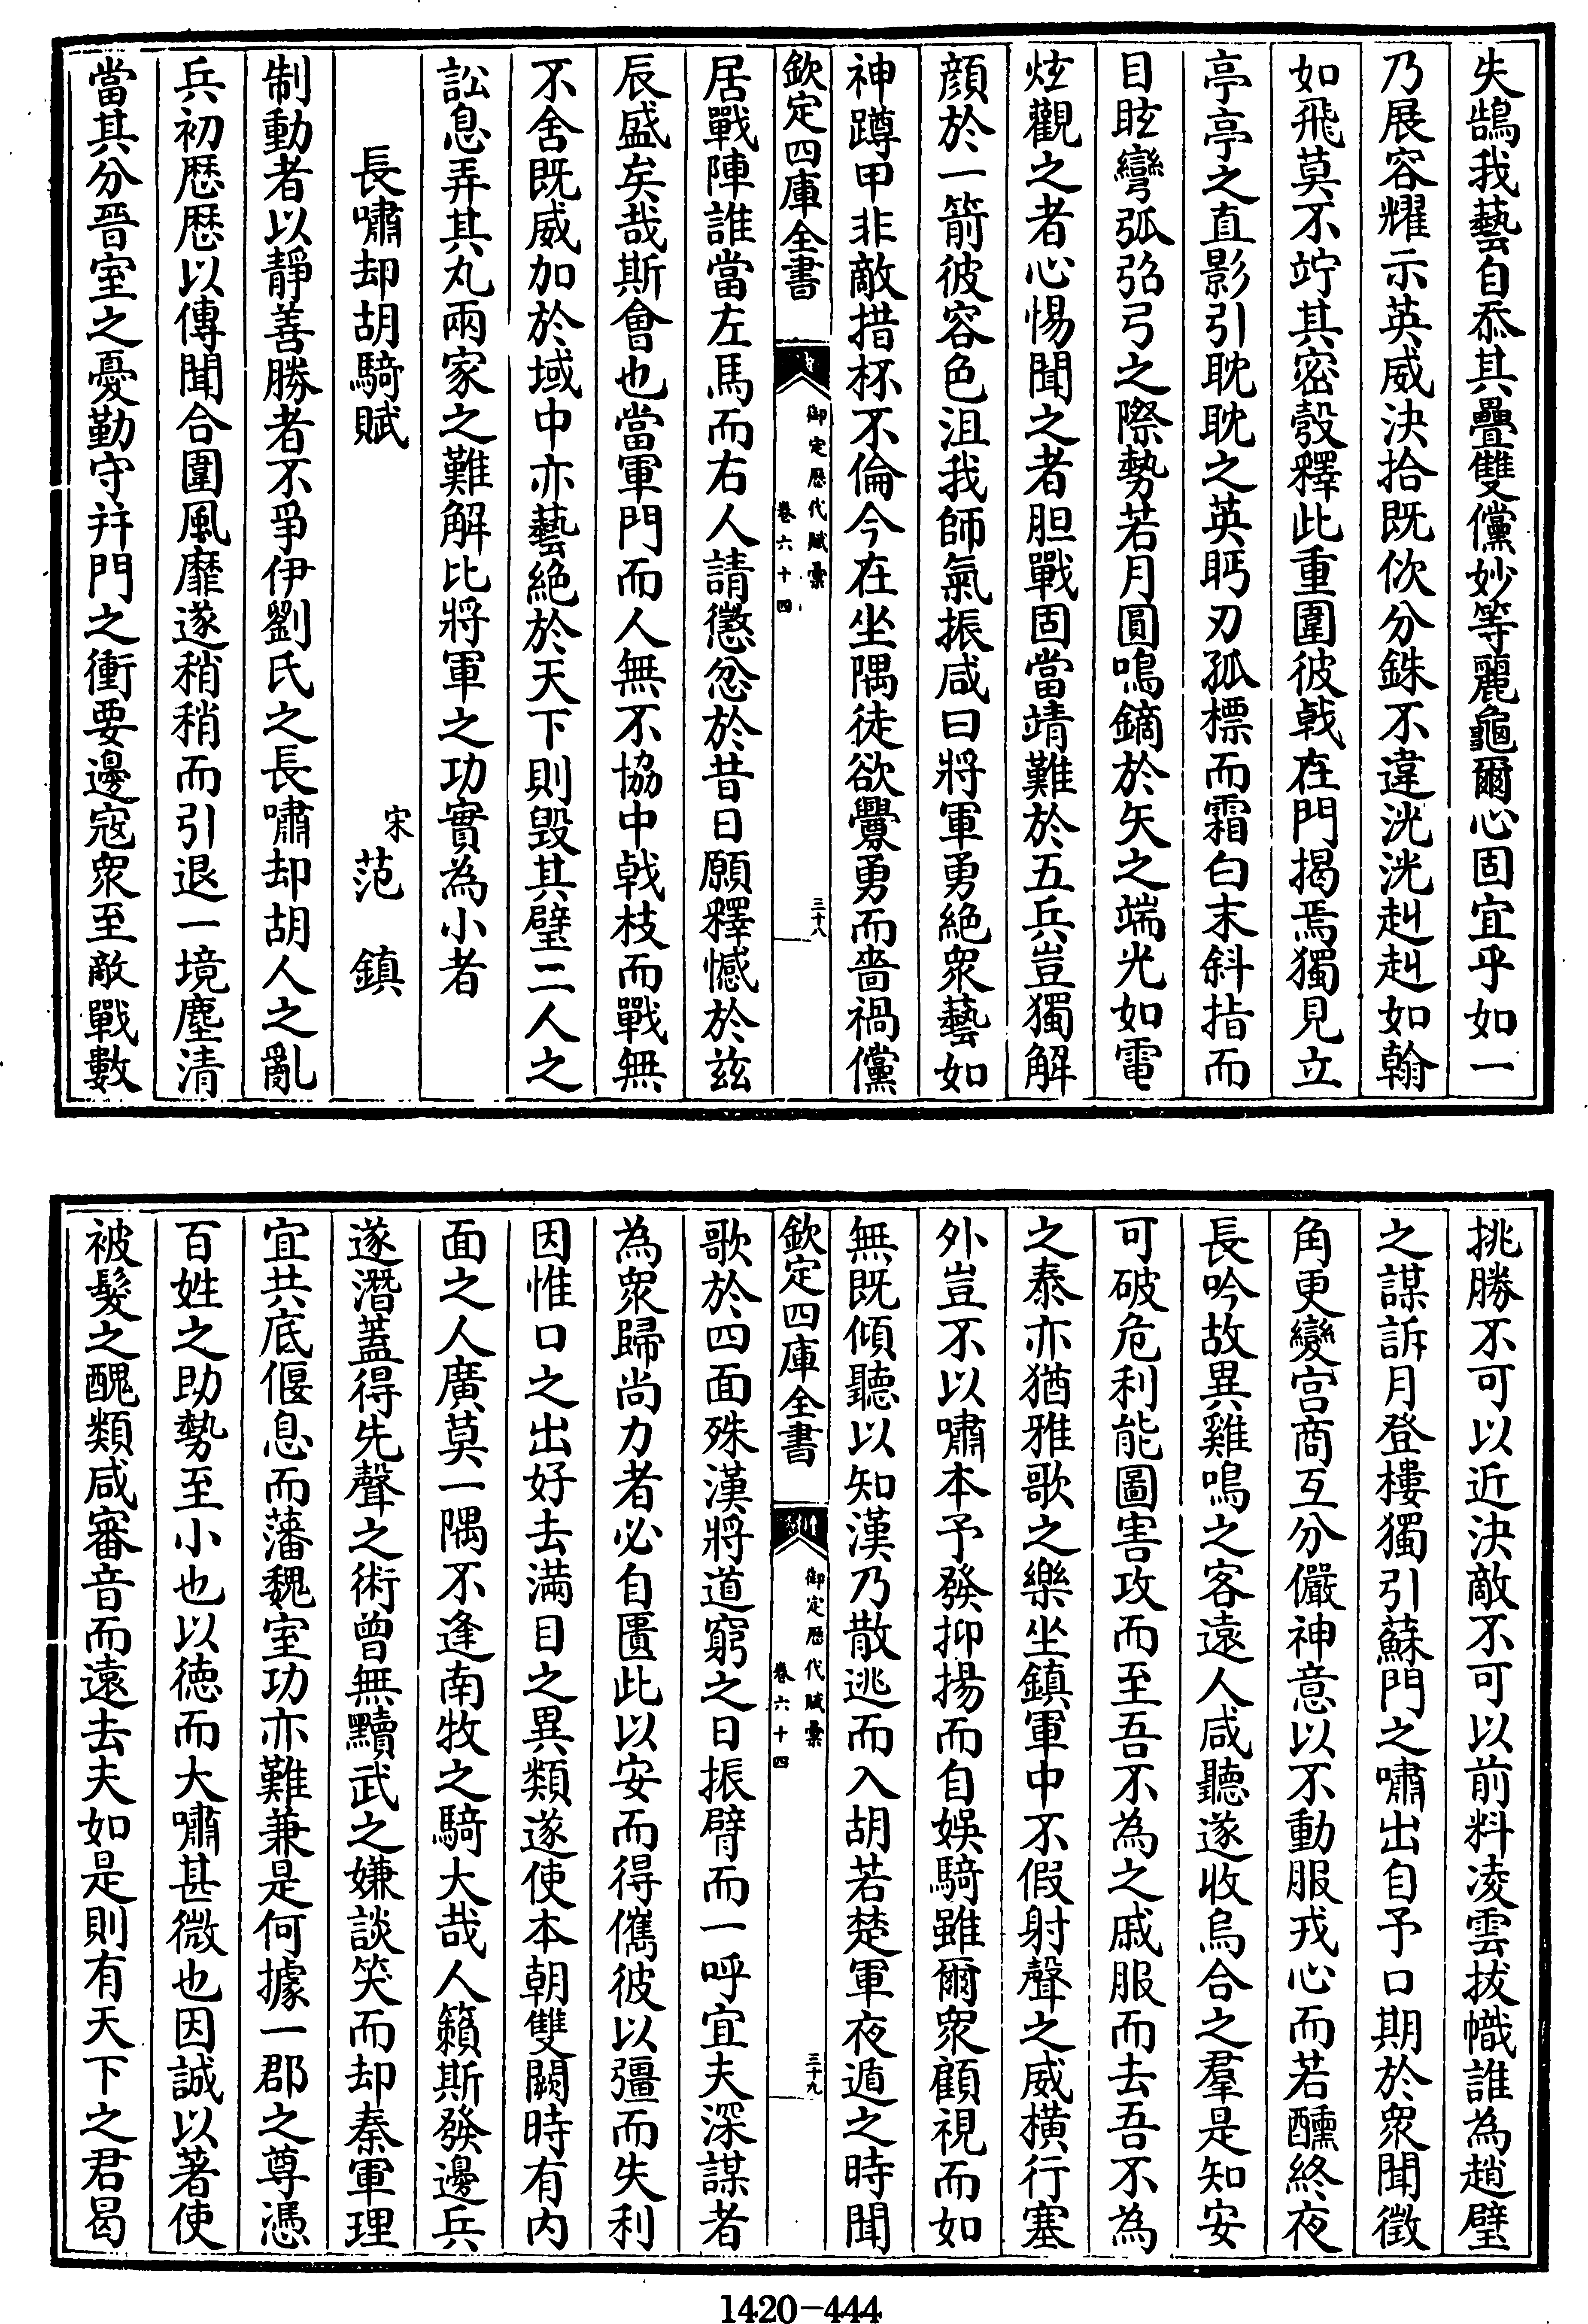 失鵠我藝自忝其疊雙儻妙等麗龜爾心固宜乎如一
乃展容耀示英威決拾既佽分銖不違洸洸赳赳如翰
如飛莫不竚其密彀釋此重圍彼戟在門揭焉獨見立
亭亭之直影引耽耽之英眄刃孤標而霜白末斜指而
目眩彎弧弨弓之際勢若月圓鳴鏑於矢之端光如電
炫觀之者心惕聞之者胆戰固當靖難於五兵豈獨解
顔於一箭彼容色沮我師氣振咸曰將軍勇絶衆藝如
神蹲甲非敵措杯不倫今在坐隅徒欲釁勇而啬禍儻
欽定四庫全書
御定歴代賦彙
卷六十四
三十八
居戰陣誰當左馬而右人請懲忿於昔日願釋憾於兹
辰盛矣哉斯會也當軍門而人無不協中戟枝而戰無
不舍既威加於域中亦藝絶於天下則毁其璧二人之
訟息弄其丸兩家之難解比將軍之功實為小者
長嘯却胡騎賦
宋范鎮
制動者以靜善勝者不爭伊劉氏之長嘯却胡人之亂
兵初歴歴以傳聞合圍風靡遂稍稍而引退一境塵清
當其分晉室之憂勤守并門之衝要邊寇衆至敵戰數
挑勝不可以近決敵不可以前料凌雲拔幟誰為趙璧
之謀訴月登樓獨引蘇門之嘯出自予口期於衆聞徵
角更變宫商互分儼神意以不動服戎心而若醺終夜
長吟故異雞鳴之客遠人咸聽遂收烏合之羣是知安
可破危利能圖害攻而至吾不為之戚服而去吾不為
之泰亦猶雅歌之樂坐鎮軍中不假射聲之威横行塞
外豈不以嘯本予發抑揚而自娛騎雖爾衆顧視而如
無既傾聽以知漢乃散逃而入胡若楚軍夜遁之時聞
欽定四庫全書
御定歴代賦彙
卷六十四
三十九
歌於四面殊漢將道窮之日振臂而一呼宜夫深謀者
為衆歸尚力者必自匱此以安而得儁彼以彊而失利
因惟口之出好去满目之異類遂使本朝雙闕時有内
面之人廣莫一隅不逢南牧之騎大哉人籟斯發邊兵
遂潛蓋得先聲之術曾無黷武之嫌談笑而却秦軍理
宜共底偃息而藩魏室功亦難兼是何據一郡之尊憑
百姓之助勢至小也以徳而大嘯甚微也因誠以著使
被髮之醜類咸審音而遠去夫如是則有天下之君曷
1420-444